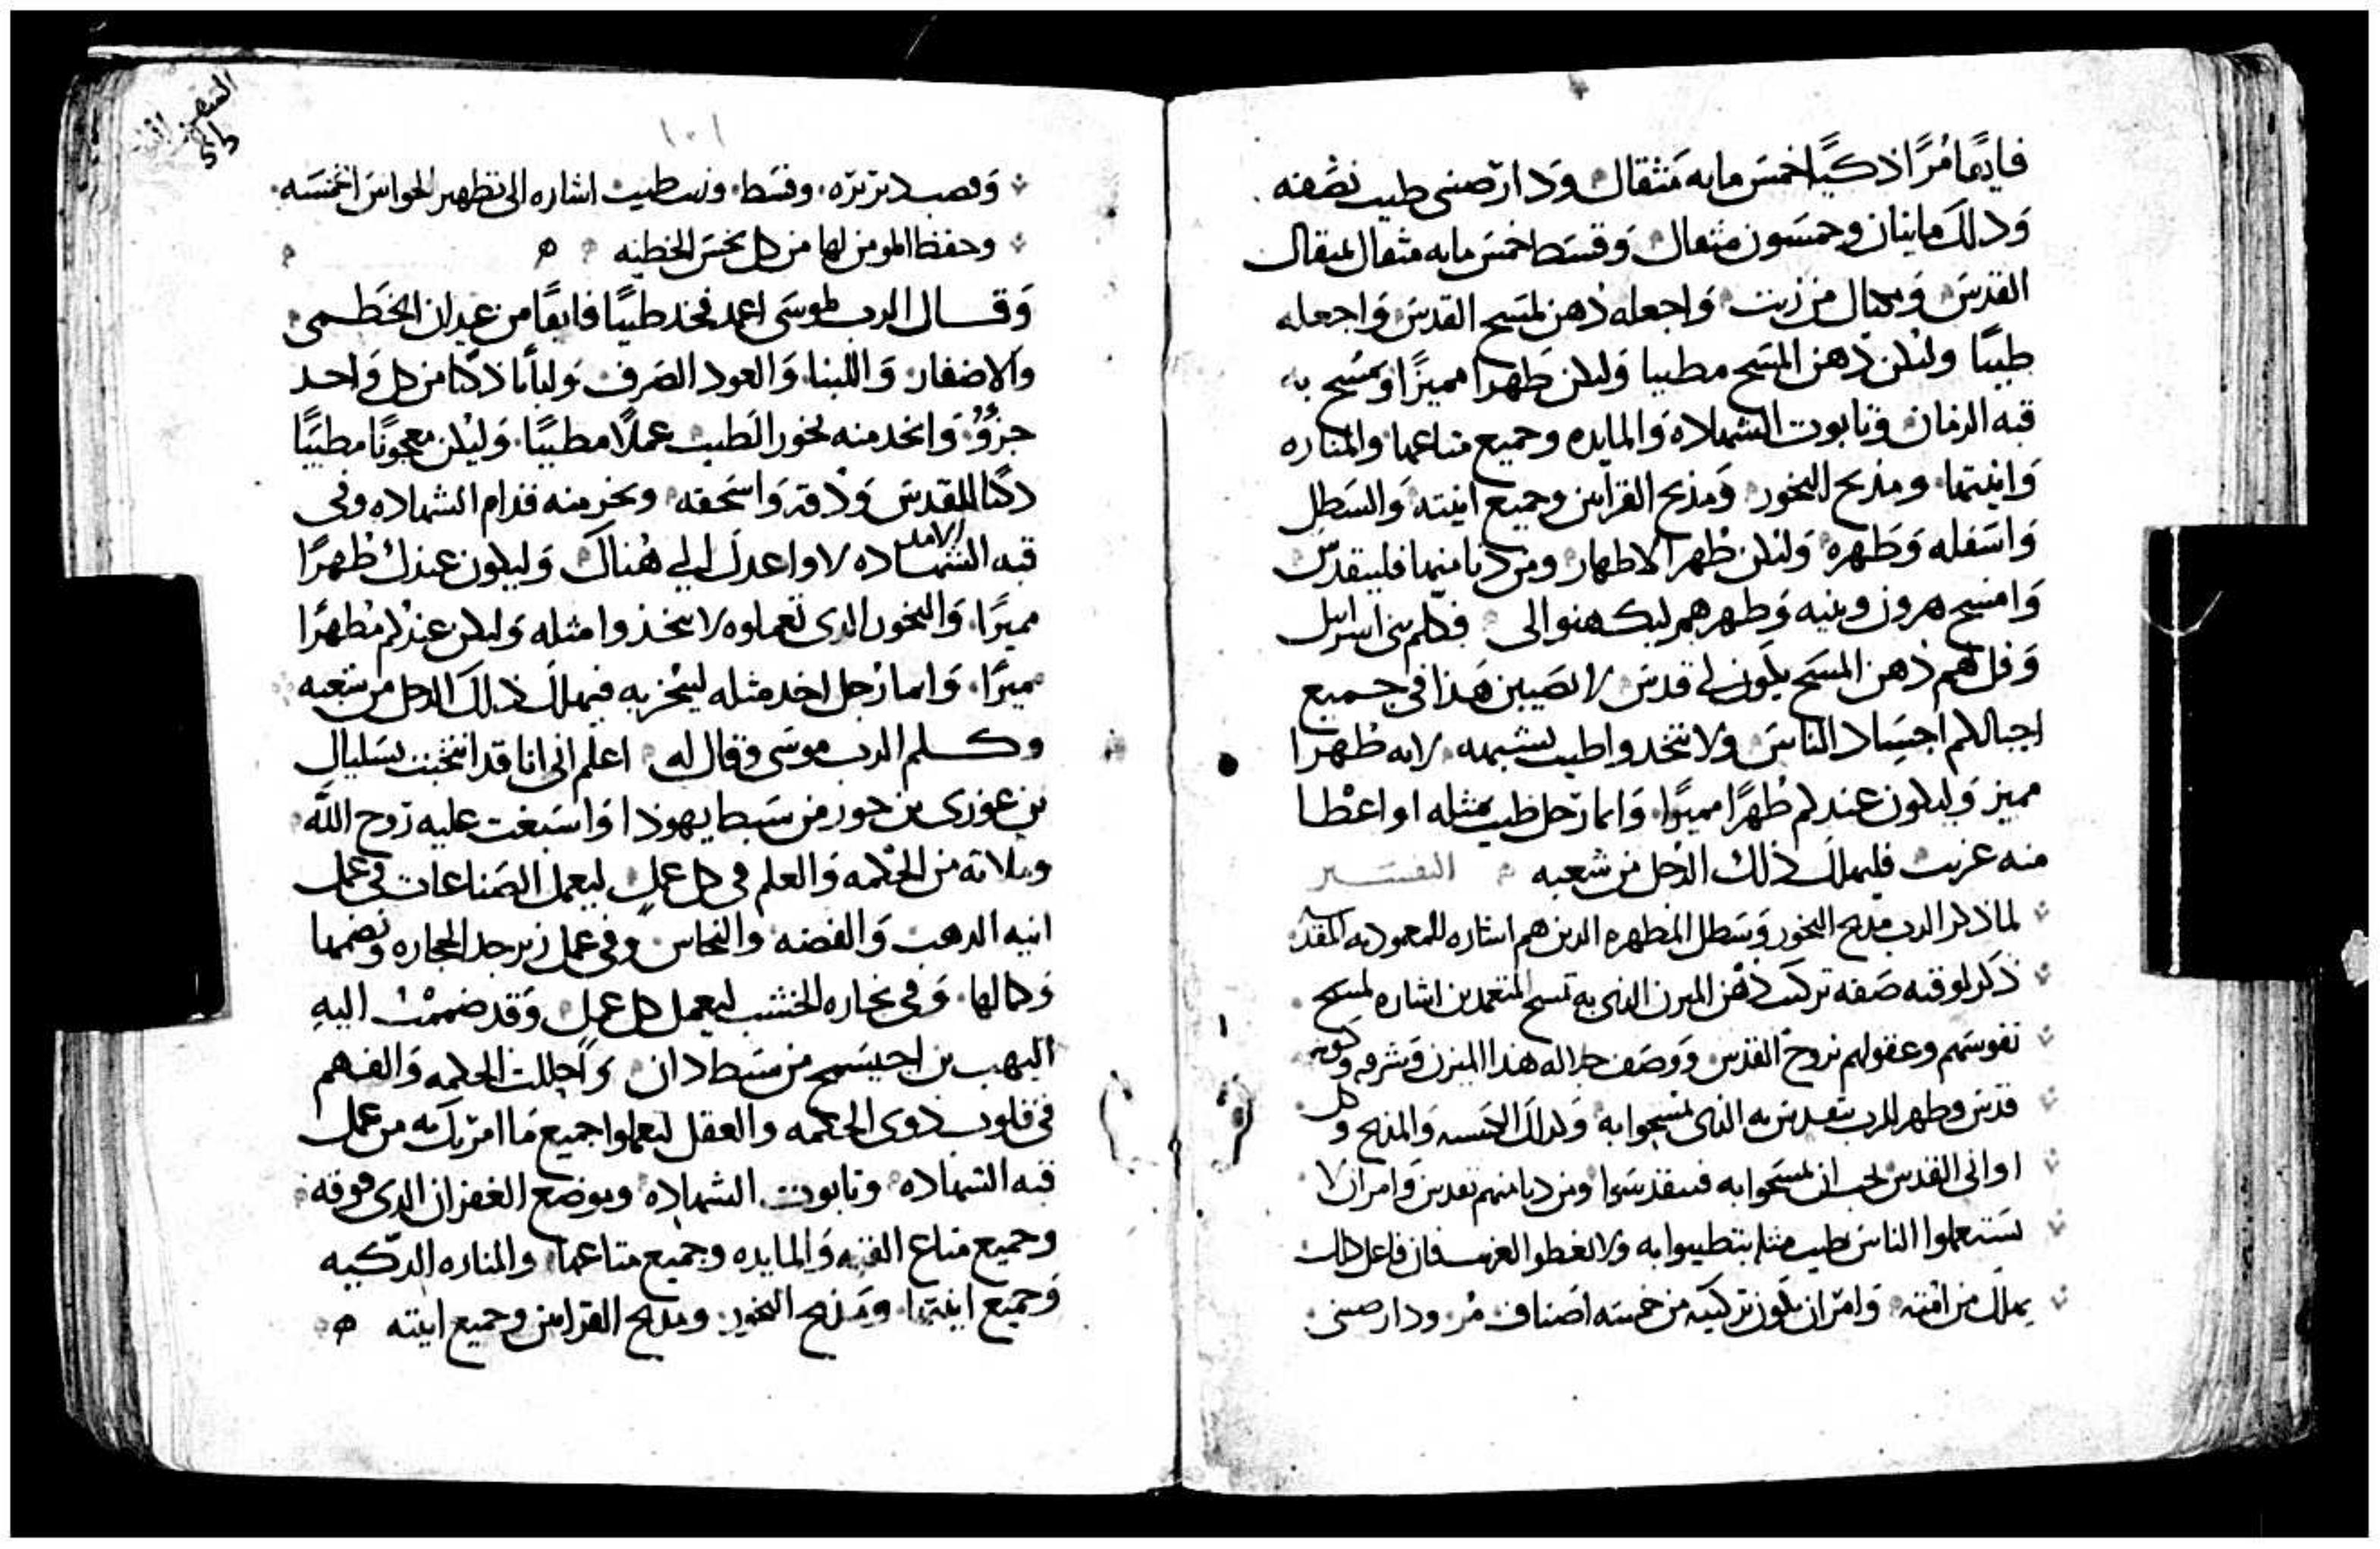 فايقا مُرًّا ذكيًا خمس مايه مثقال ودارصينى طيب نصفه
وذلك مايتان وخمسون مثقال وقسط خمس مايه مثقال بمثقال
القدس ومكيال من زيت واجعله دهن لمسح القدس واجعله
طيبًا وليكن دهن المسح مطيبا وليكن طهرا مميزًا وتمسح به
قبه الزمان وتابوت الشهاده والمايده وجميع متاعها والمناره
وانيتها ومذبح البخور ومذبح القرابين وجميع انيته والسطل
واسفله وطهره وليكن طهر الاطهار ومن دنا منها فليتقدس
وامسح هرون وبنيه وطهرهم ليكهنوا لى فكلم بنى اسرايل
وقل لهم دهن المسح يكون لى قدس لا تصيبن هذا فى جميع
اجيالكم اجساد الناس ولا تتخدوا طيب يشبهه لانه طهرا
مميز وليكون عندكم طُهرًا مميزًا وايما رجل طيب بمثله او اعطا
منه غريب فليهلك ذلك الرجل من شعبه التفسير
لما ذكر الرب مذبح البخور وسطل المطهره الدين هم اشاره للمعموديه المقدسه
ذكر لوقته صفه تركيب دهن الميرن الذى به تمسح المتعمدين اشاره لمسح
نفوسهم وعقولهم بروح القدس ووصف جلاله هذا الميرن وشرفه وكونه
قدس وطهر للرب يتقدس به الذى يمسحوا به وكذلك الكنيسه والمذبح وكل
اوانى القدس يجب ان يمسحوا به فيتقدسوا ومن دنا منهم تقدس وامر ان لا
يستعملوا الناس طيب مثله يتطيبوا به ولا يعطوا الغريب فان فاعل ذلك
يهلك من امته وامر ان يكون تركيبه من خمسه اصناف مر ودارصينى
١٠١
وقصب دريره وقسط وزيت طيب اشاره الى تطهير الحواس الخمسه
وحفظ المومن لها من كل نجس الخطيه
وقال الرب لموسى اعمد فخد طيبًا فايقًا من عيدان الخطمى
والاضفار واللبنا والعود الصرف ولبانا ذكيا من كل واحد
جزؤ واتخد منه بخور الطيب عملا مطيبًا وليكن معجونًا مطيبًا
ذكيا للمقدس ودقه واسحقه وبخر منه قدام الشهاده وفى
قبه الشهاده لاواعدك الى هناك وليكون عندك طُهرًا
مميزًا والبخور الدى تعملوه لا تتخذوا مثله وليكن عندكم مطهرًا
مميزًا وايما رجل اخد مثله ليبخر به فيهلك ذلك الرجل من شعبه
وكلم الرب موسى وقال له اعلم انى انا قد انتخبت بسليال
بن عورى بن حور من سبط يهوذا واسبغت عليه روح الله
وملاته من الحكمه والعلم فى كل عمل ليعمل الصناعات فى عمل
انيه الدهب والفضه والنحاس وفى عمل زبرجد الحجاره ونضمها
وكمالها وفى نجاره الخشب ليعمل كل عمل وقد ضممت اليه
اليهب بن احيسمح من سبط دان واحللت الحكمه والفهم
فى قلوب ذوى الحكمه والعقل ليعملوا جميع ما امرتك به من عمل
قبه الشهاده وتابوت الشهاده وموضع الغفران الدى فوقه
وجميع متاع القبه والمايده وجميع متاعها والمناره الذكيه
وجميع انيتها ومذبح البخور ومذبح القرابين وجميع انيته